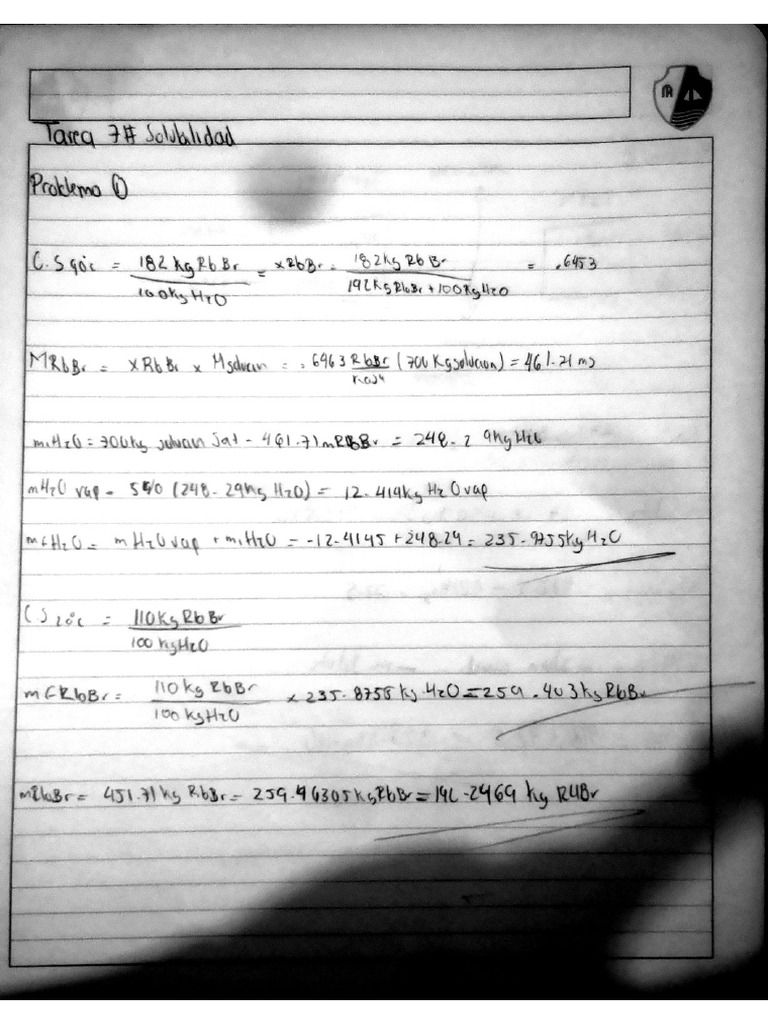 Tarea 7# Solubilidad
Problema ①
C.S 90°c = 182 kg RbBr / 100kg H2O = xRbBr = 182kg RbBr / 192kg RbBr + 100kg H2O = .6453
MRbBr = xRbBr x Msolucion = .6963 RbBr (700 kg solucion) = 461.71
m1H2O = 700kg solucion sat - 461.71 mRbBr = 248.29kg H2O
mH2O vap = 5% (248.29kg H2O) = 12.414kg H2O vap
mfH2O = mH2O vap + m1H2O = -12.4145 + 248.29 = 235.8755kg H2O
CS 20°c = 110kg RbBr / 100 kg H2O
mfRbBr = 110 kg RbBr / 100 kg H2O x 235.8755 kg H2O = 259.403 kg RbBr
mRbBr = 451.71 kg RbBr = 259.46305kg RbBr = 192.2469 kg RbBr